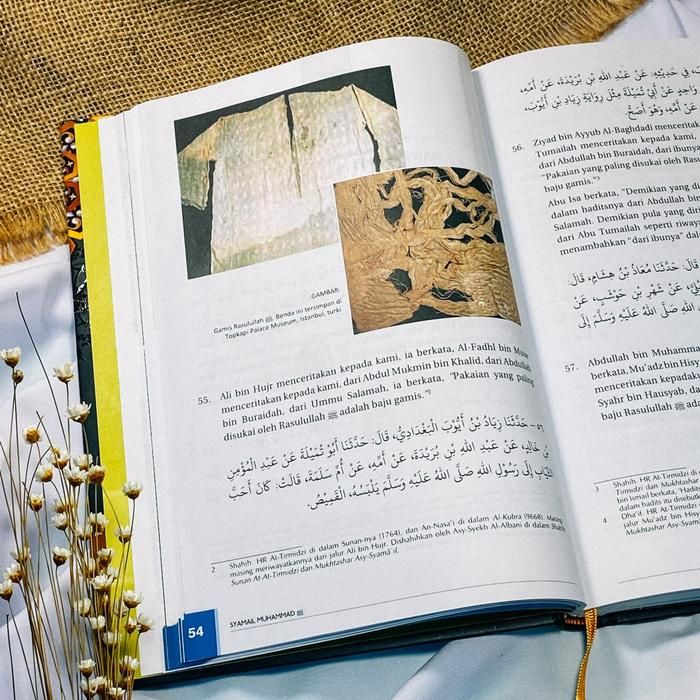 GAMBAR:
Gamis Rasulullah ﷺ. Benda ini tersimpan di
Topkapi Palace Museum, Istanbul, turki
55. Ali bin Hujr menceritakan kepada kami, ia berkata, Al-Fadhl bin Musa
menceritakan kepada kami, dari Abdul Mukmin bin Khalid, dari Abdullah
bin Buraidah, dari Ummu Salamah, ia berkata, "Pakaian yang paling
disukai oleh Rasulullah ﷺ adalah baju gamis."²
٥٥- حَدَّثَنَا زِيَادُ بْنُ أَيُّوبَ الْبَغْدَادِيُّ، قَالَ: حَدَّثَنَا أَبُو تُمَيْلَةَ عَنْ عَبْدِ الْمُؤْمِنِ
بْنِ خَالِدٍ، عَنْ عَبْدِ اللهِ بْنِ بُرَيْدَةَ، عَنْ أُمِّهِ، عَنْ أُمِّ سَلَمَةَ، قَالَتْ: كَانَ أَحَبَّ
الثِّيَابِ إِلَى رَسُولِ اللهِ صَلَّى اللهُ عَلَيْهِ وَسَلَّمَ يَلْبَسُهُ، الْقَمِيْصُ.
2 Shahih. HR At-Tirmidzi di dalam Sunan-nya (1764), dan An-Nasa'i di dalam Al-Kubra (9668). Masing-
masing meriwayatkannya dari jalur Ali bin Hujr. Dishahihkan oleh Asy-Syekh Al-Albani di dalam Shahih
Sunan At-At-Tirmidzi dan Mukhtashar Asy-Syamâ'il.
54
SYAMAIL MUHAMMAD ﷺ
فِي حَدِيْثِهِ: عَنْ عَبْدِ اللهِ بْنِ بُرَيْدَةَ، عَنْ أُمِّهِ،
وَاحِدٍ عَنْ أَبِي تُمَيْلَةَ مِثْلَ رِوَايَةِ زِيَادِ بْنِ أَيُّوبَ،
عَنْ أُمِّهِ، وَهُوَ أَصَحُّ.
56. Ziyad bin Ayyub Al-Baghdadi menceritak
Tumailah menceritakan kepada kami,
dari Abdullah bin Buraidah, dari ibunya
"Pakaian yang paling disukai oleh Ras
baju gamis."³
Abu Isa berkata, "Demikian yang di
dalam haditsnya dari Abdullah bin
Salamah. Demikian pula yang d
dari Abu Tumailah seperti riway
menambahkan "dari ibunya" dal
قَالَ: حَدَّثَنَا مُعَاذُ بْنُ هِشَامٍ، قَالَ:
عَنْ شَهْرِ بْنِ حَوْشَبٍ، عَنْ
اللهِ صَلَّى اللهُ عَلَيْهِ وَسَلَّمَ إِلَى
57. Abdullah bin Muhamma
berkata, Mu'adz bin Hisy
menceritakan kepadaku
Syahr bin Hausyab, da
baju Rasulullah ﷺ ada
3 Shahih. HR At-Tirmidzi di d
Tirmidzi dan Mukhtashar
bin Ismail berkata, 'Hadits
dalam hadits itu disebutk
4 Dha'if. HR At-Tirmidzi di
jalur Mu'adz bin Hisy
Mukhtashar Asy-Syama